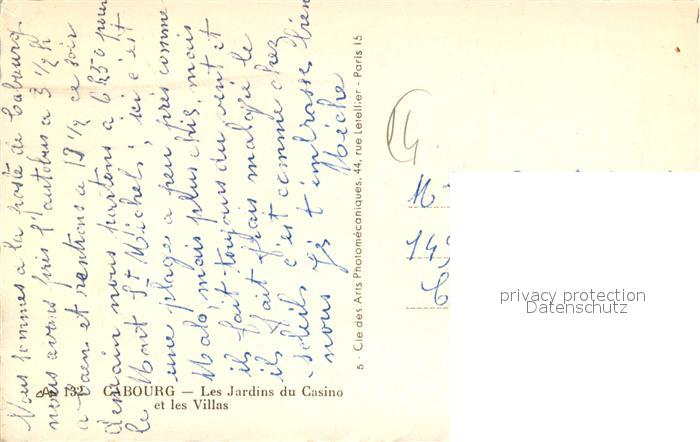 Nous sommes à la poste de Cabourg
nous avons pris l'autobus à 3 1/2 h
à Caen et rentrons à 18 1/2 ce soir
demain nous partons à 6h50 pour
le Mont St Michel; ici c'est
une plage a peu près comme
Malo mais plus chic, mais
il fait toujours du vent et
il fait frais malgré le
soleil c'est comme chez
nous Je t'embrasse bien
Miche
5 - Cie des Arts Photomécaniques, 44, rue Letellier - Paris 15
CABOURG — Les Jardins du Casino
et les Villas
M
privacy protection
Datenschutz